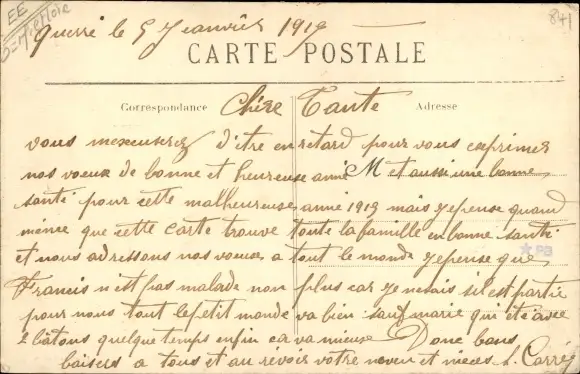 EE
841
querré le 5 Janvier 1919
CARTE POSTALE
Correspondance Chère Tante Adresse
vous mexcuserez d'être en retard pour vous exprimer
nos voeux de bonne et heureuse anné M et aussi une bonne
santé pour cette malheureuse anné 1919 mais jepense quand
même que cette carte trouve toute la famille en bonne santé
et nous adressons nos voeux a tout le monde jepense que
Francis n'est pas malade non plus car je nesais sil est partie
pour nous tout lepetit monde va bien sauf marie qui été avec
2 batons quelque temps enfin car va mieuse Donc bons
baisers a tous et au revoir votre neveu et nieces L. Carré
PB